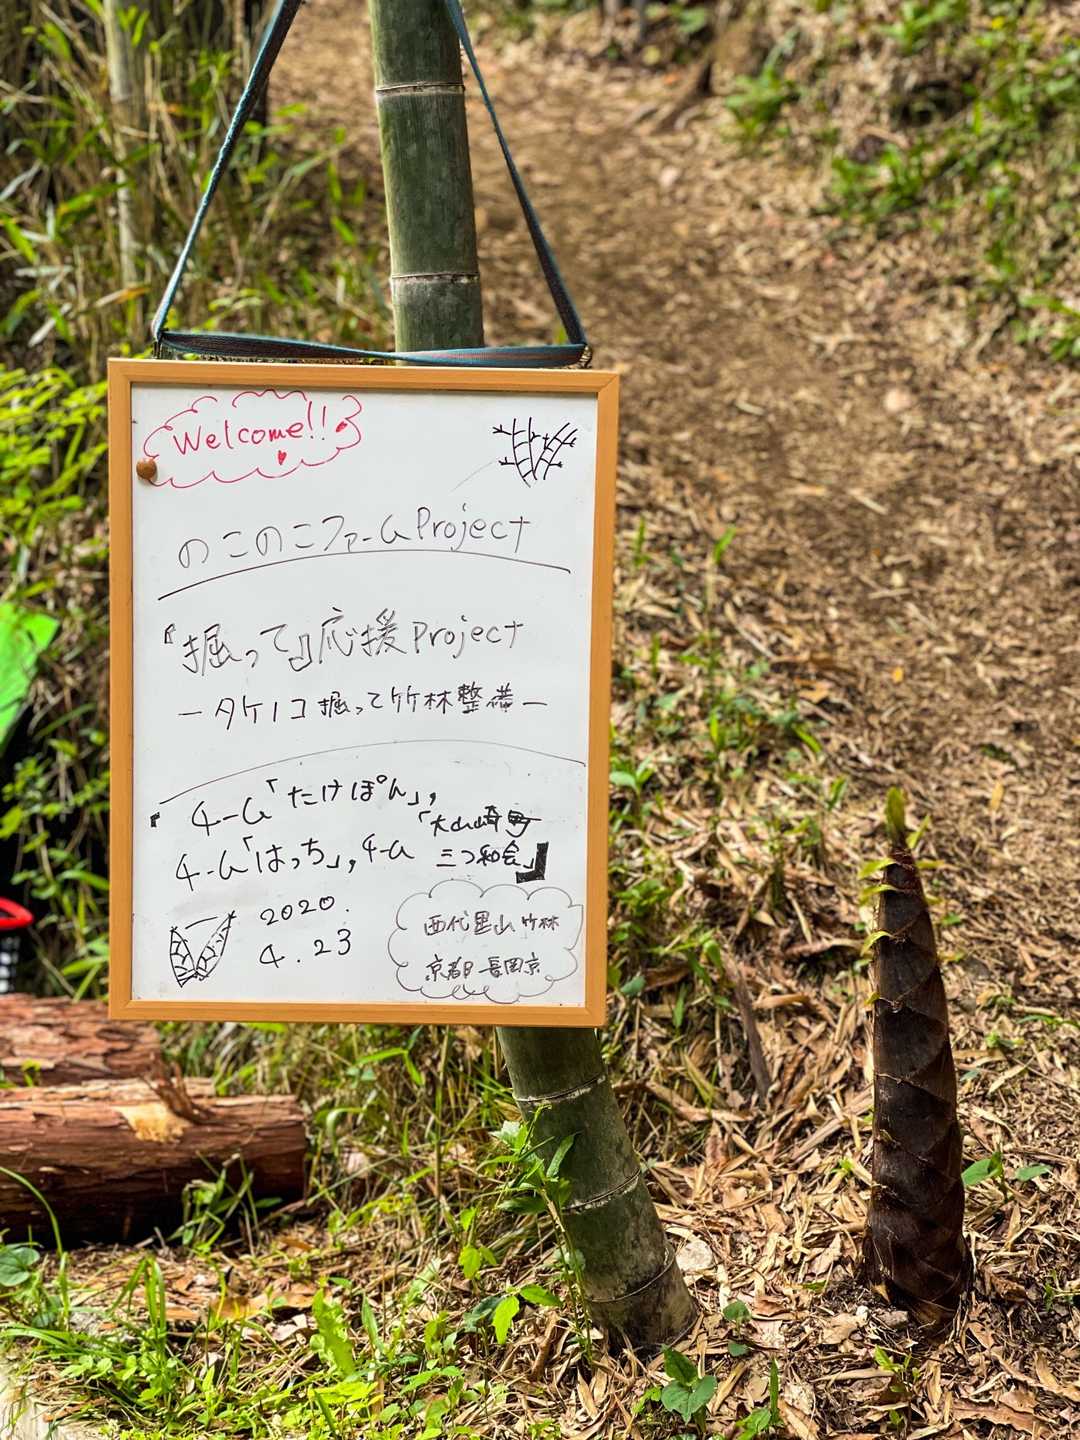 Welcome!!
のこのこファームProject
『掘って』応援Project
ータケノコ掘って竹林整備ー
『チーム「たけぽん」,
チーム「はっち」,チーム
「大山崎町
三つ和会」』
2020.
4.23
西代里山竹林
京都 長岡京